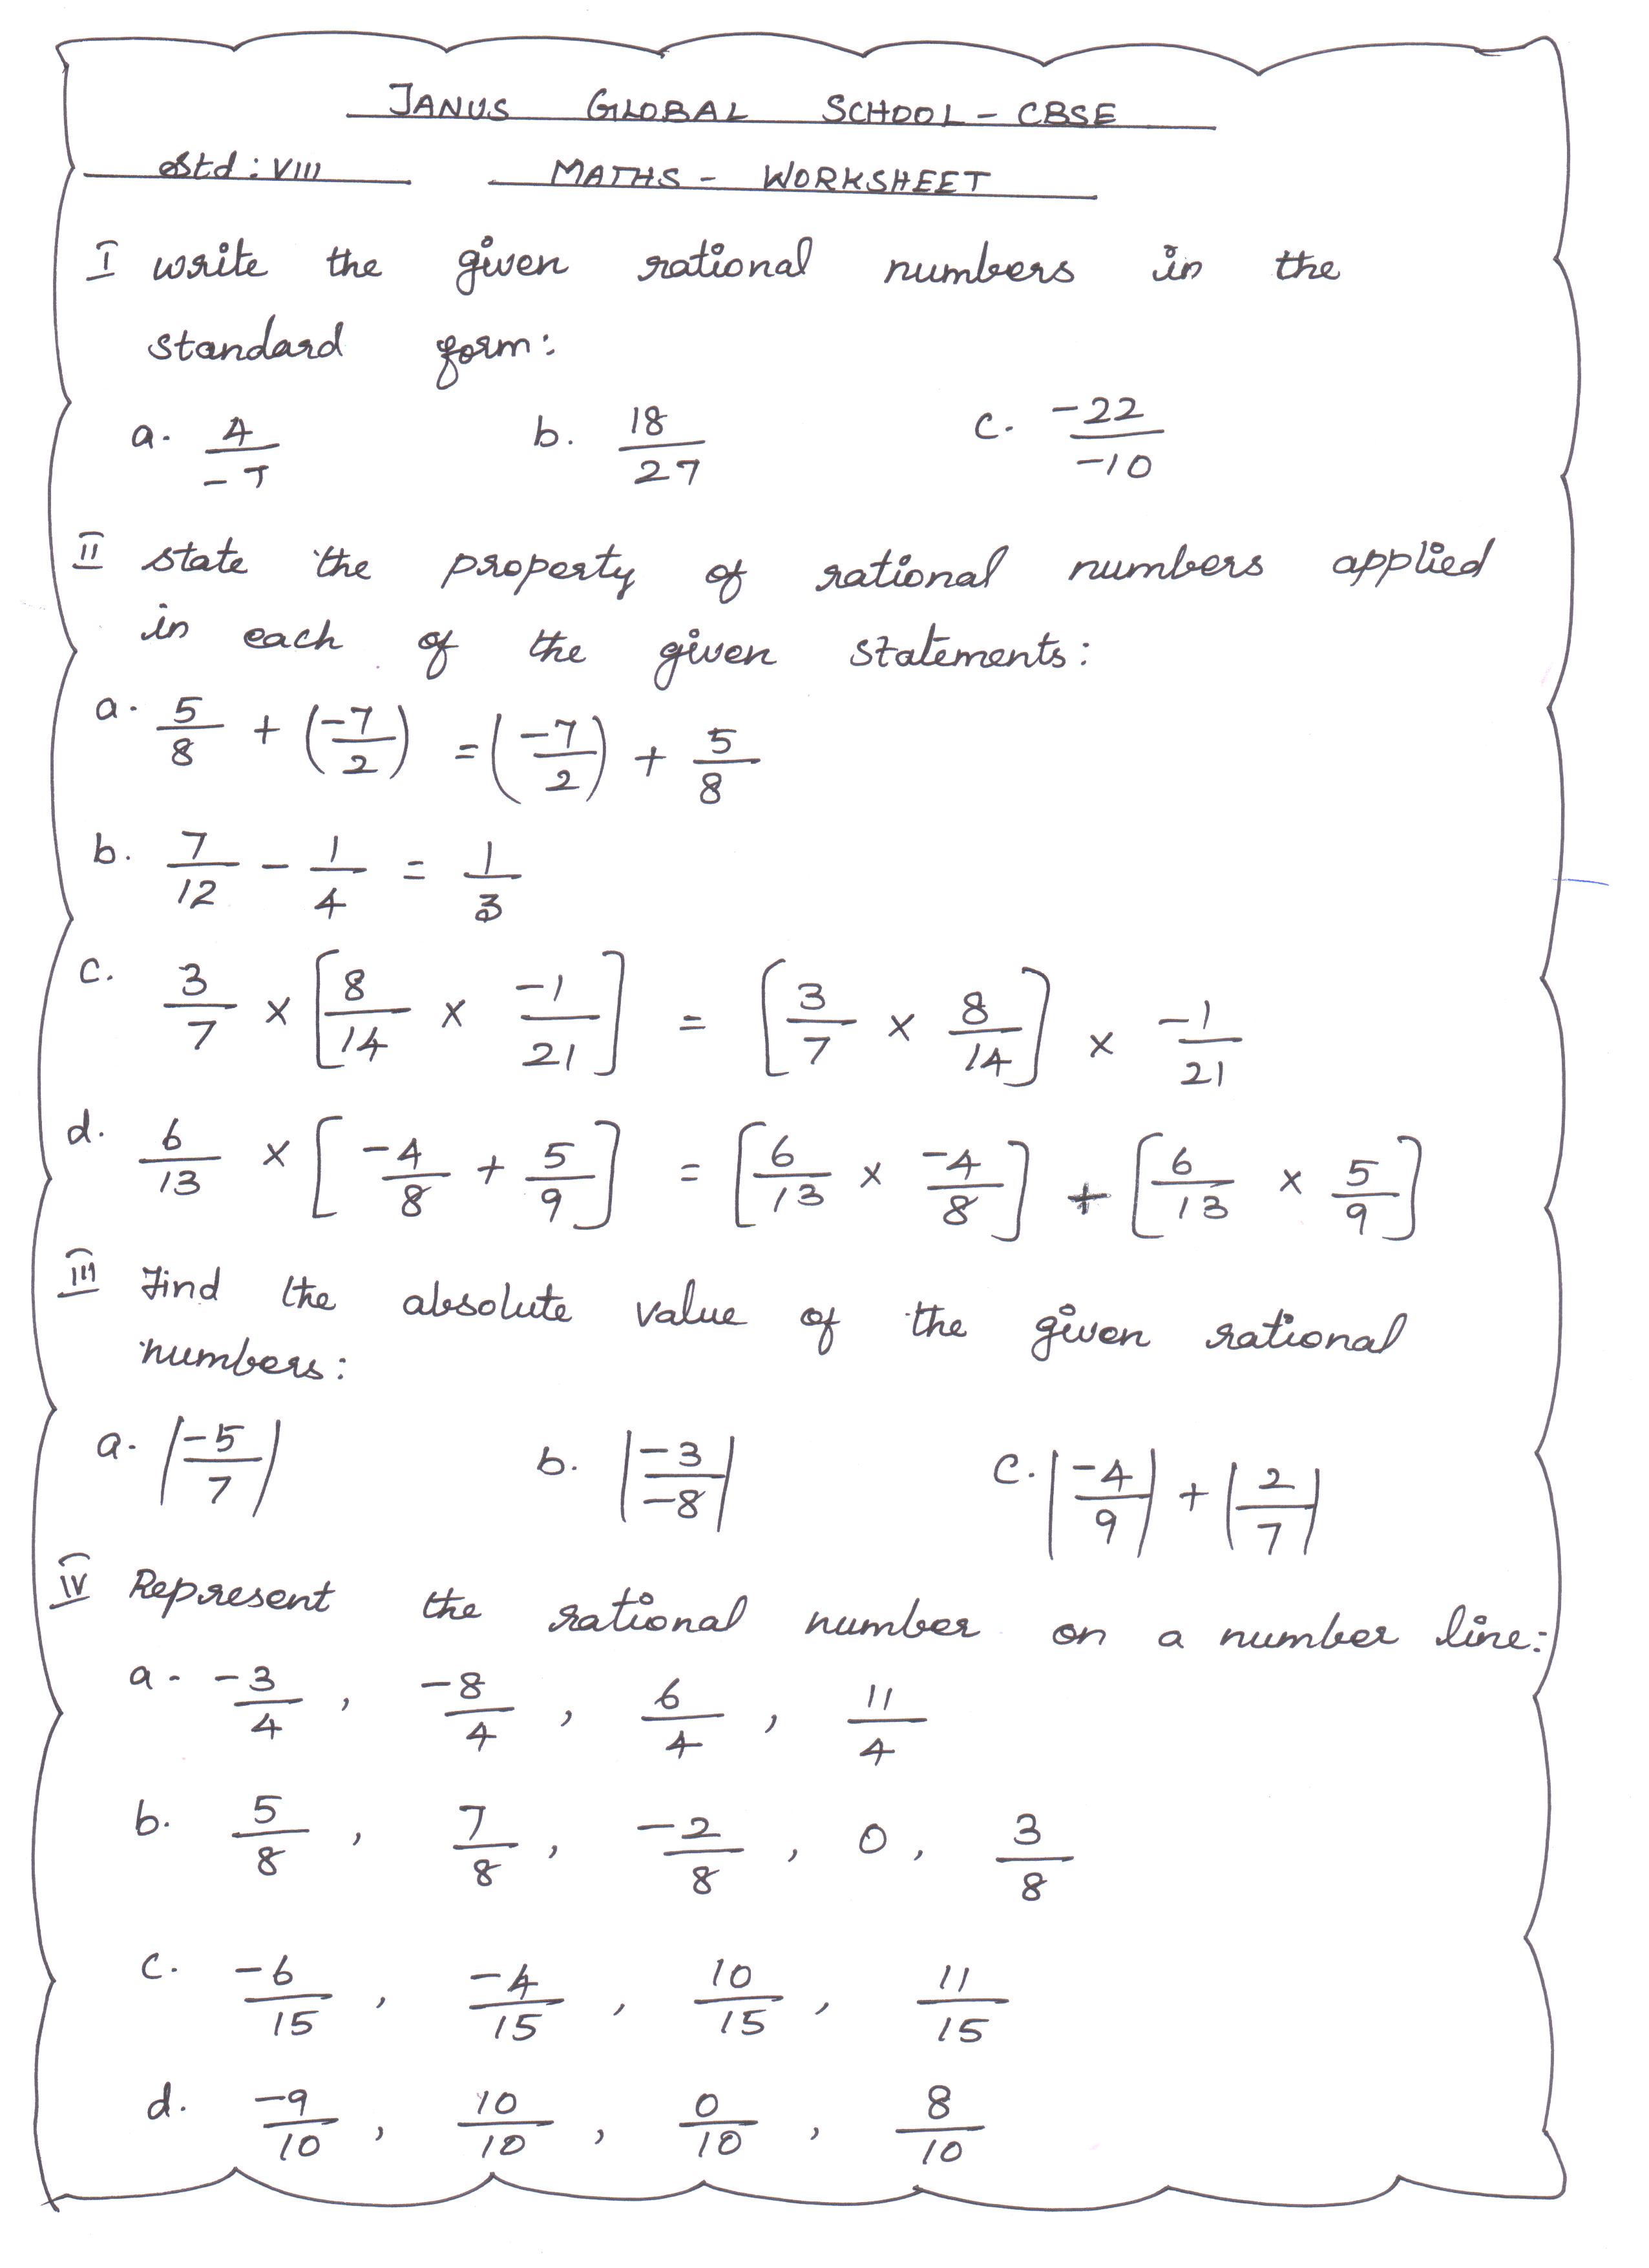 JANUS GLOBAL SCHOOL - CBSE
Std : VIII MATHS - WORKSHEET
I write the given rational numbers in the
standard form:
a. 4/-7 b. 18/27 c. -22/-10
II state the property of rational numbers applied
in each of the given statements:
a. 5/8 + (-7/2) = (-7/2) + 5/8
b. 7/12 - 1/4 = 1/3
c. 3/7 × [8/14 × -1/21] = [3/7 × 8/14] × -1/21
d. 6/13 × [-4/8 + 5/9] = [6/13 × -4/8] + [6/13 × 5/9]
III Find the absolute value of the given rational
numbers:
a. |-5/7| b. |-3/-8| c. |-4/9| + |2/7|
IV Represent the rational number on a number line:
a. -3/4 , -8/4 , 6/4 , 11/4
b. 5/8 , 7/8 , -2/8 , 0 , 3/8
c. -6/15 , -4/15 , 10/15 , 11/15
d. -9/10 , 10/10 , 0/10 , 8/10